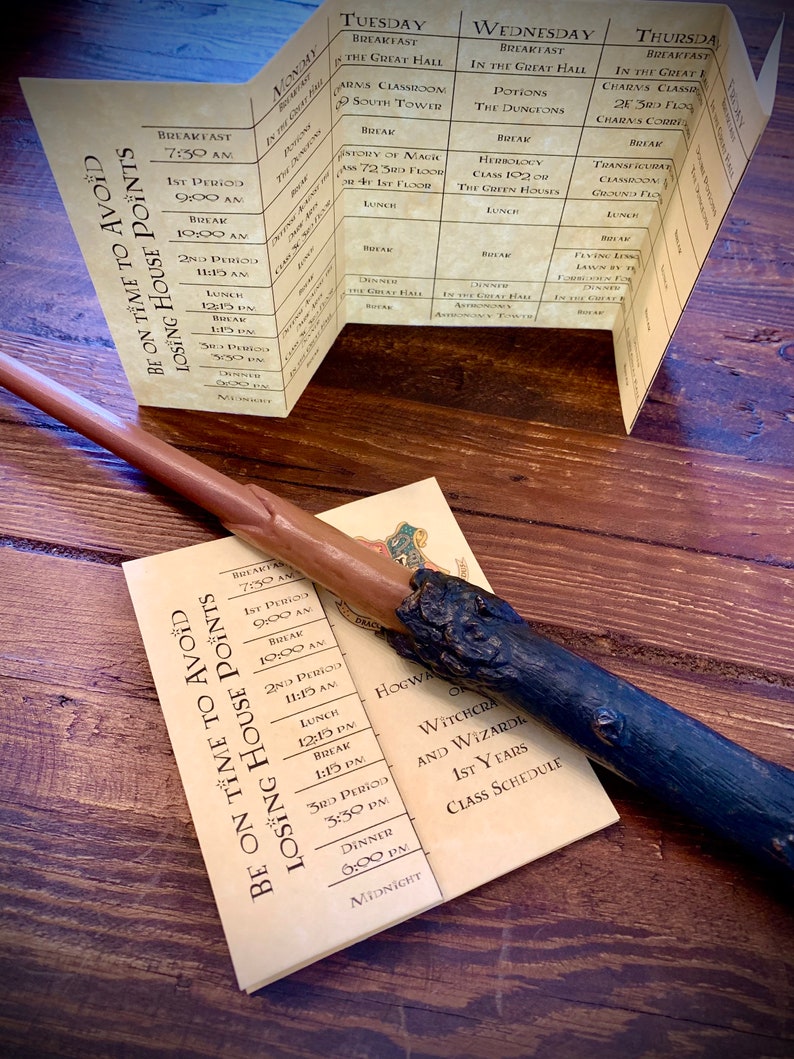 Be on time to Avoid
losing House Points
Breakfast
7:30 am
1st Period
9:00 am
Break
10:00 am
2nd Period
11:15 am
Lunch
12:15 pm
Break
1:15 pm
3rd Period
3:30 pm
Dinner
6:00 pm
Midnight
Monday
Breakfast
in the Great Hall
Potions
The Dungeons
Break
Defense Against the
Dark Arts
Class 3C 3rd Floor
Lunch
Break
Tuesday
Breakfast
in the Great Hall
Charms Classroom
South Tower
Break
History of Magic
Class 72 3rd Floor
or 4F 1st Floor
Lunch
Break
Dinner
the Great Hall
Break
Wednesday
Breakfast
in the Great Hall
Potions
The Dungeons
Break
Herbology
Class 102 or
The Green Houses
Lunch
Break
Dinner
in the Great Hall
Astronomy
Astronomy Tower
Thursda
Breakfast
in the Great H
Charms Clas
2E 3rd Floo
Charms Corri
Break
Transfigurat
Classroom
Ground Flo
Lunch
Break
Flying Less
Lawn by th
Forbidden Fo
Dinner
in the Great H
Break
Friday
Breakfast
Great Hall
Double Potions
The Dungeons
Break
Lunch
Break
Be on time to Avoid
losing House Points
Breakfast
7:30 am
1st Period
9:00 am
Break
10:00 am
2nd Period
11:15 am
Lunch
12:15 pm
Break
1:15 pm
3rd Period
3:30 pm
Dinner
6:00 pm
Midnight
Draco
Hogwa
of
Witchcra
and Wizardr
1st Years
Class Schedule